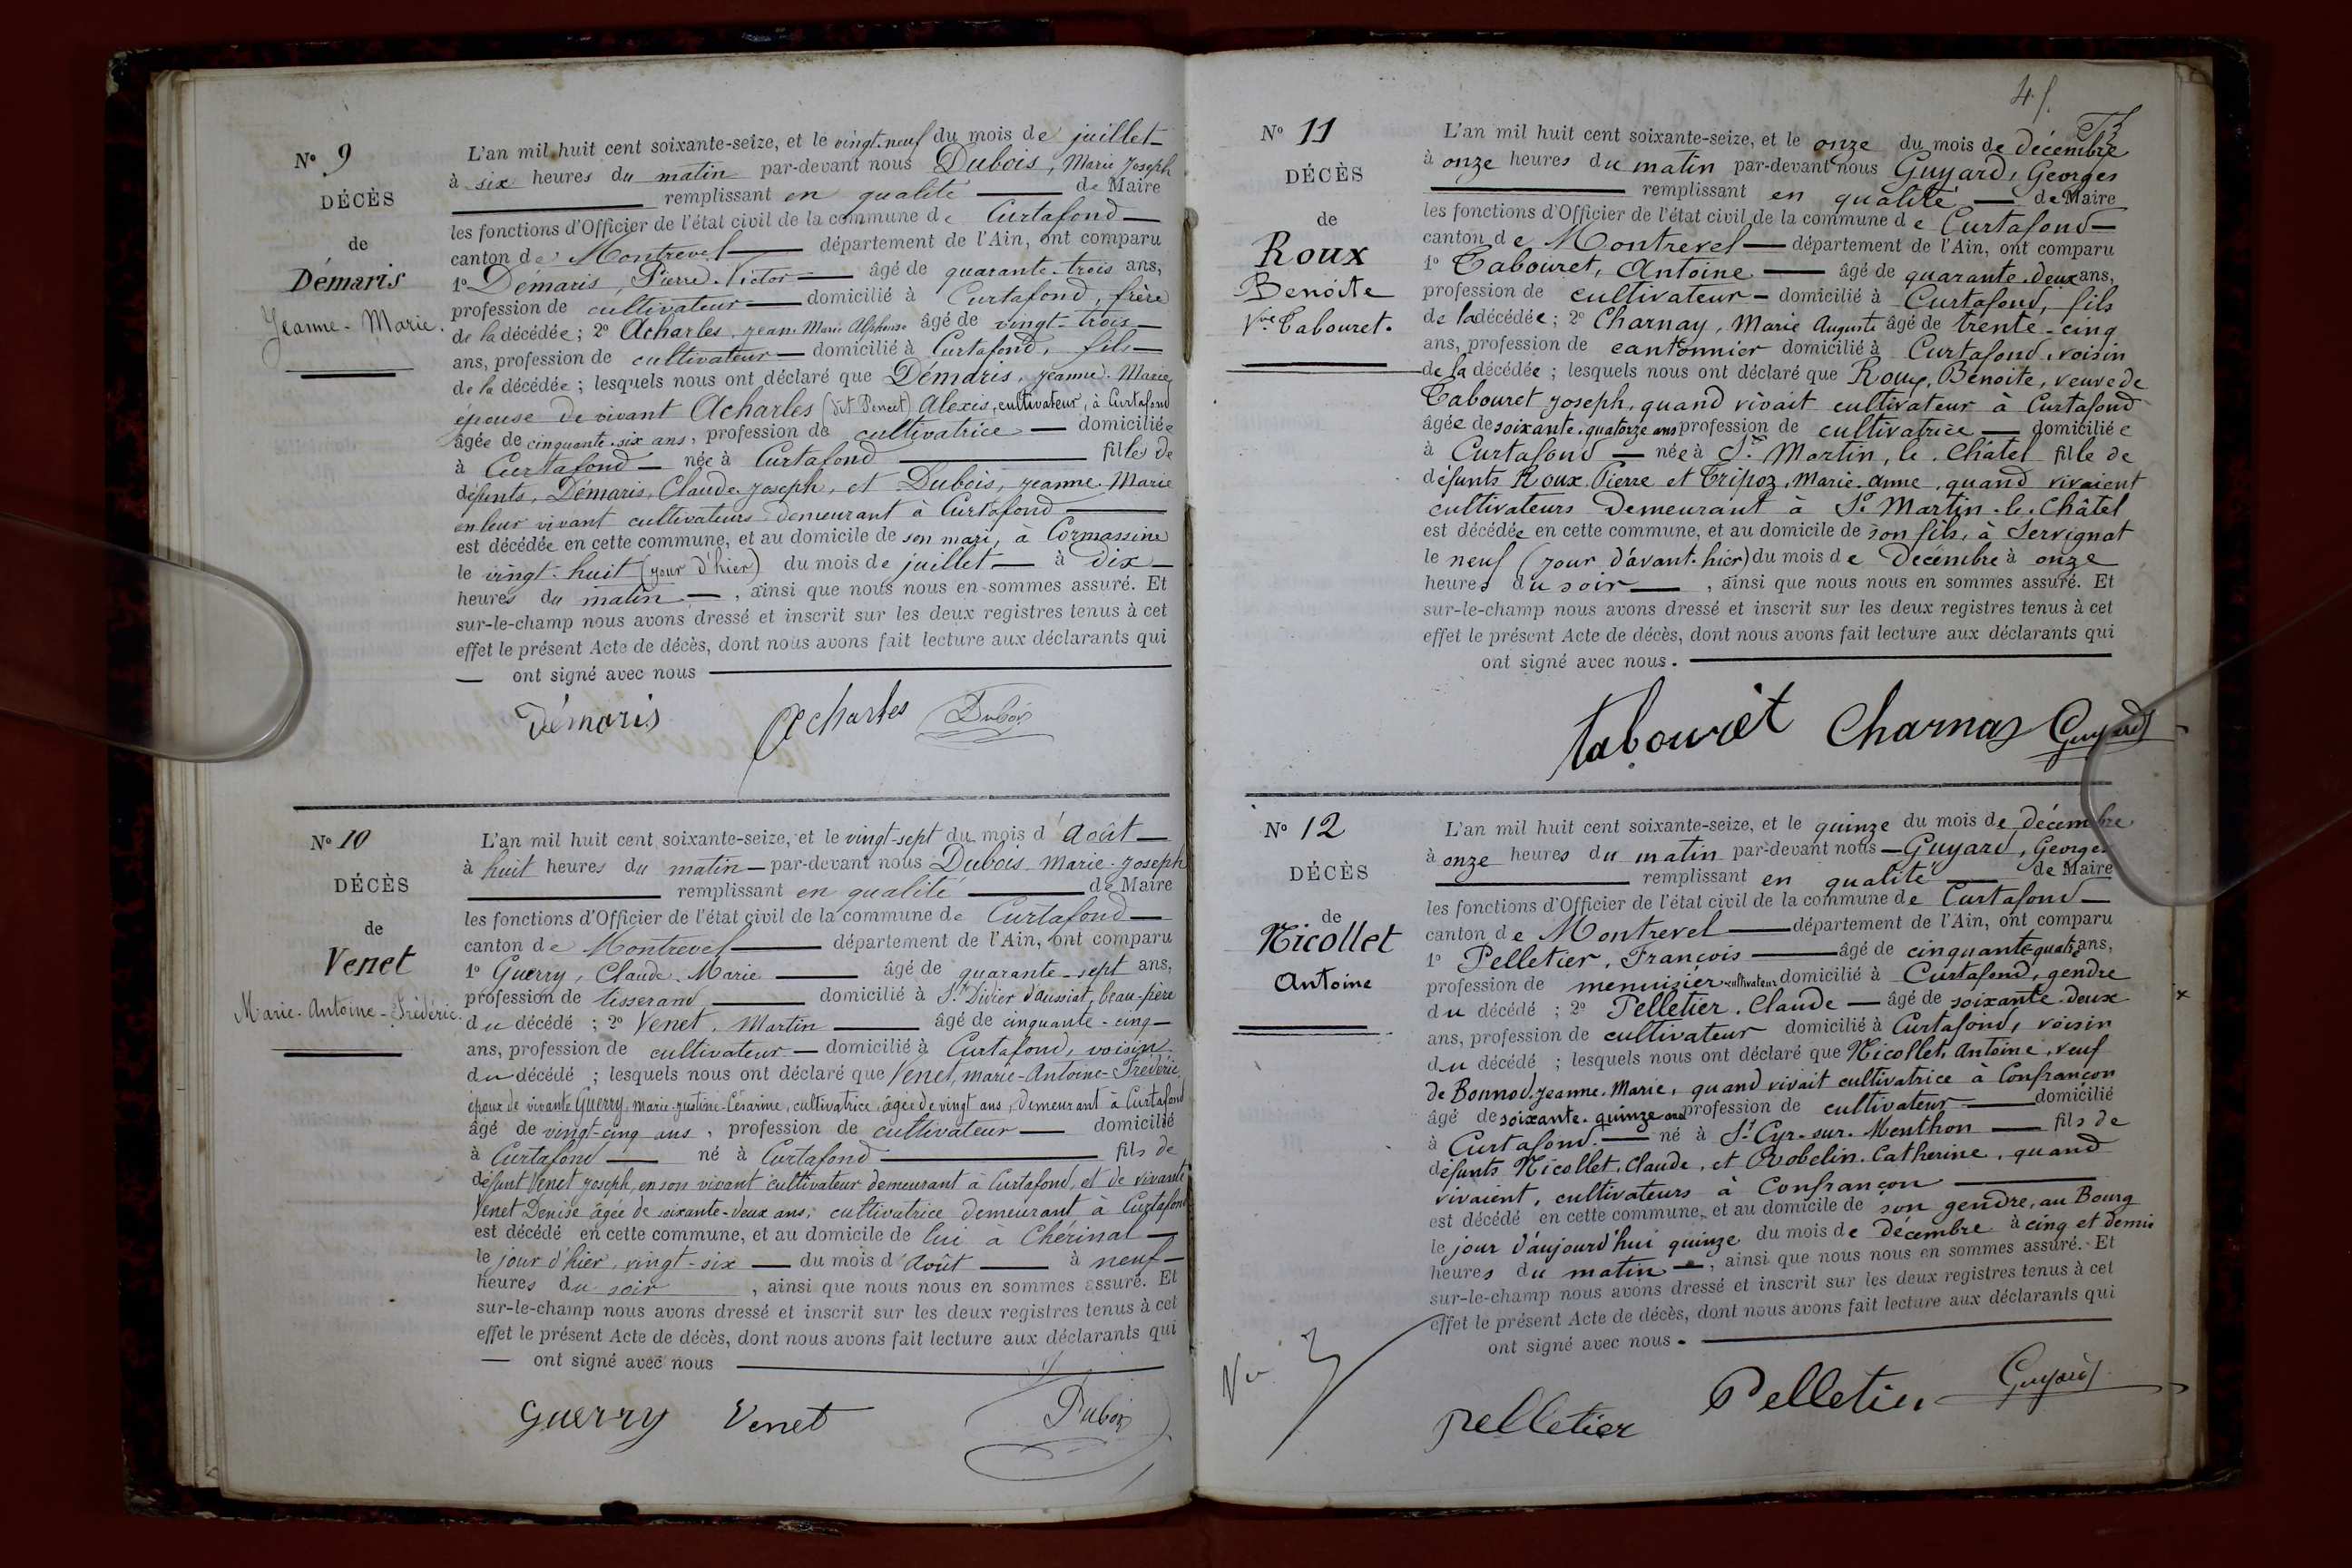 N° 9
DÉCÈS
de
Démaris
Jeanne-Marie.
L'an mil huit cent soixante-seize, et le vingt-neuf du mois de juillet
à six heures du matin par-devant nous Dubois, Marie Joseph
remplissant en qualité de Maire
les fonctions d'Officier de l'état civil de la commune de Curtafond
canton de Montrevel département de l'Ain, ont comparu
1° Démaris, Pierre Victor âgé de quarante-trois ans,
profession de cultivateur domicilié à Curtafond, frère
de la décédée; 2° Acharles, Jean Marie Alphonse âgé de vingt-trois
ans, profession de cultivateur domicilié à Curtafond, fils
de la décédée; lesquels nous ont déclaré que Démaris, Jeanne-Marie
épouse de vivant Acharles (dit Poncet) Alexis, cultivateur, à Curtafond
âgée de cinquante-six ans, profession de cultivatrice domiciliée
à Curtafond née à Curtafond fille de
défunts, Démaris, Claude Joseph, et Dubois, Jeanne Marie
en leur vivant cultivateurs demeurant à Curtafond
est décédée en cette commune, et au domicile de son mari, à Cormassine
le vingt-huit (jour d'hier) du mois de juillet à dix
heures du matin, ainsi que nous nous en sommes assuré. Et
sur-le-champ nous avons dressé et inscrit sur les deux registres tenus à cet
effet le présent Acte de décès, dont nous avons fait lecture aux déclarants qui
ont signé avec nous
Démaris Acharles Dubois
N° 10
DÉCÈS
de
Venet
Marie-Antoine-Frédéric.
L'an mil huit cent soixante-seize, et le vingt-sept du mois d'Août
à huit heures du matin par-devant nous Dubois Marie-Joseph
remplissant en qualité de Maire
les fonctions d'Officier de l'état civil de la commune de Curtafond
canton de Montrevel département de l'Ain, ont comparu
1° Guerry, Claude-Marie âgé de quarante-sept ans,
profession de tisserand domicilié à St Didier d'aussiat, beau-père
du décédé; 2° Venet, Martin âgé de cinquante-cinq
ans, profession de cultivateur domicilié à Curtafond, voisin
du décédé; lesquels nous ont déclaré que Venet, marie-Antoine-Frédéric,
époux de vivante Guerry, marie-justine-Césarine, cultivatrice, âgée de vingt ans, demeurant à Curtafond
âgé de vingt-cinq ans, profession de cultivateur domicilié
à Curtafond né à Curtafond fils de
défunt Venet Joseph, en son vivant cultivateur demeurant à Curtafond, et de vivante
Venet Denise âgée de soixante-deux ans, cultivatrice demeurant à Curtafond
est décédé en cette commune, et au domicile de lui à Chérinal
le jour d'hier, vingt-six du mois d'Août à neuf
heures du soir, ainsi que nous nous en sommes assuré. Et
sur-le-champ nous avons dressé et inscrit sur les deux registres tenus à cet
effet le présent Acte de décès, dont nous avons fait lecture aux déclarants qui
ont signé avec nous
Guerry Venet Dubois
N° 11
DÉCÈS
de
Roux
Benoite
Vve Tabouret.
L'an mil huit cent soixante-seize, et le onze du mois de décembre
à onze heures du matin par-devant nous Guyard, Georges
remplissant en qualité de Maire
les fonctions d'Officier de l'état civil de la commune de Curtafond
canton de Montrevel département de l'Ain, ont comparu
1° Tabouret, Antoine âgé de quarante-deux ans,
profession de cultivateur domicilié à Curtafond, fils
de la décédée; 2° Charnay, Marie Auguste âgé de trente-cinq
ans, profession de cantonnier domicilié à Curtafond, voisin
de la décédée; lesquels nous ont déclaré que Roux, Benoite, veuve de
Tabouret Joseph, quand vivait cultivateur à Curtafond
âgée de soixante-quatorze ans profession de cultivatrice domiciliée
à Curtafond née à St Martin, le Châtel fille de
défunts Roux, Pierre et Tripoz, Marie-anne, quand vivaient
cultivateurs demeurant à St Martin-le-Châtel
est décédée en cette commune, et au domicile de son fils, à Servignat
le neuf (jour d'avant-hier) du mois de Décembre à onze
heures du soir, ainsi que nous nous en sommes assuré. Et
sur-le-champ nous avons dressé et inscrit sur les deux registres tenus à cet
effet le présent Acte de décès, dont nous avons fait lecture aux déclarants qui
ont signé avec nous.
tabouret Charnay Guyard
N° 12
DÉCÈS
de
Nicollet
Antoine
L'an mil huit cent soixante-seize, et le quinze du mois de décembre
à onze heures du matin par-devant nous Guyard, Georges
remplissant en qualité de Maire
les fonctions d'Officier de l'état civil de la commune de Curtafond
canton de Montrevel département de l'Ain, ont comparu
1° Pelletier, François âgé de cinquante-quatre ans,
profession de menuisier-cultivateur domicilié à Curtafond, gendre
du décédé; 2° Pelletier, Claude âgé de soixante-deux
ans, profession de cultivateur domicilié à Curtafond, voisin
du décédé; lesquels nous ont déclaré que Nicollet, Antoine, veuf
de Bonnod, Jeanne-Marie, quand vivait cultivatrice à Confrançon
âgé de soixante-quinze ans profession de cultivateur domicilié
à Curtafond né à St Cyr-sur-Menthon fils de
défunts Nicollet, Claude, et Robelin, Catherine, quand
vivaient, cultivateurs à Confrançon
est décédé en cette commune, et au domicile de son gendre, au Bourg
le jour d'aujourd'hui quinze du mois de décembre à cinq et demie
heures du matin, ainsi que nous nous en sommes assuré. Et
sur-le-champ nous avons dressé et inscrit sur les deux registres tenus à cet
effet le présent Acte de décès, dont nous avons fait lecture aux déclarants qui
ont signé avec nous.
Vu
pelletier Pelletier Guyard